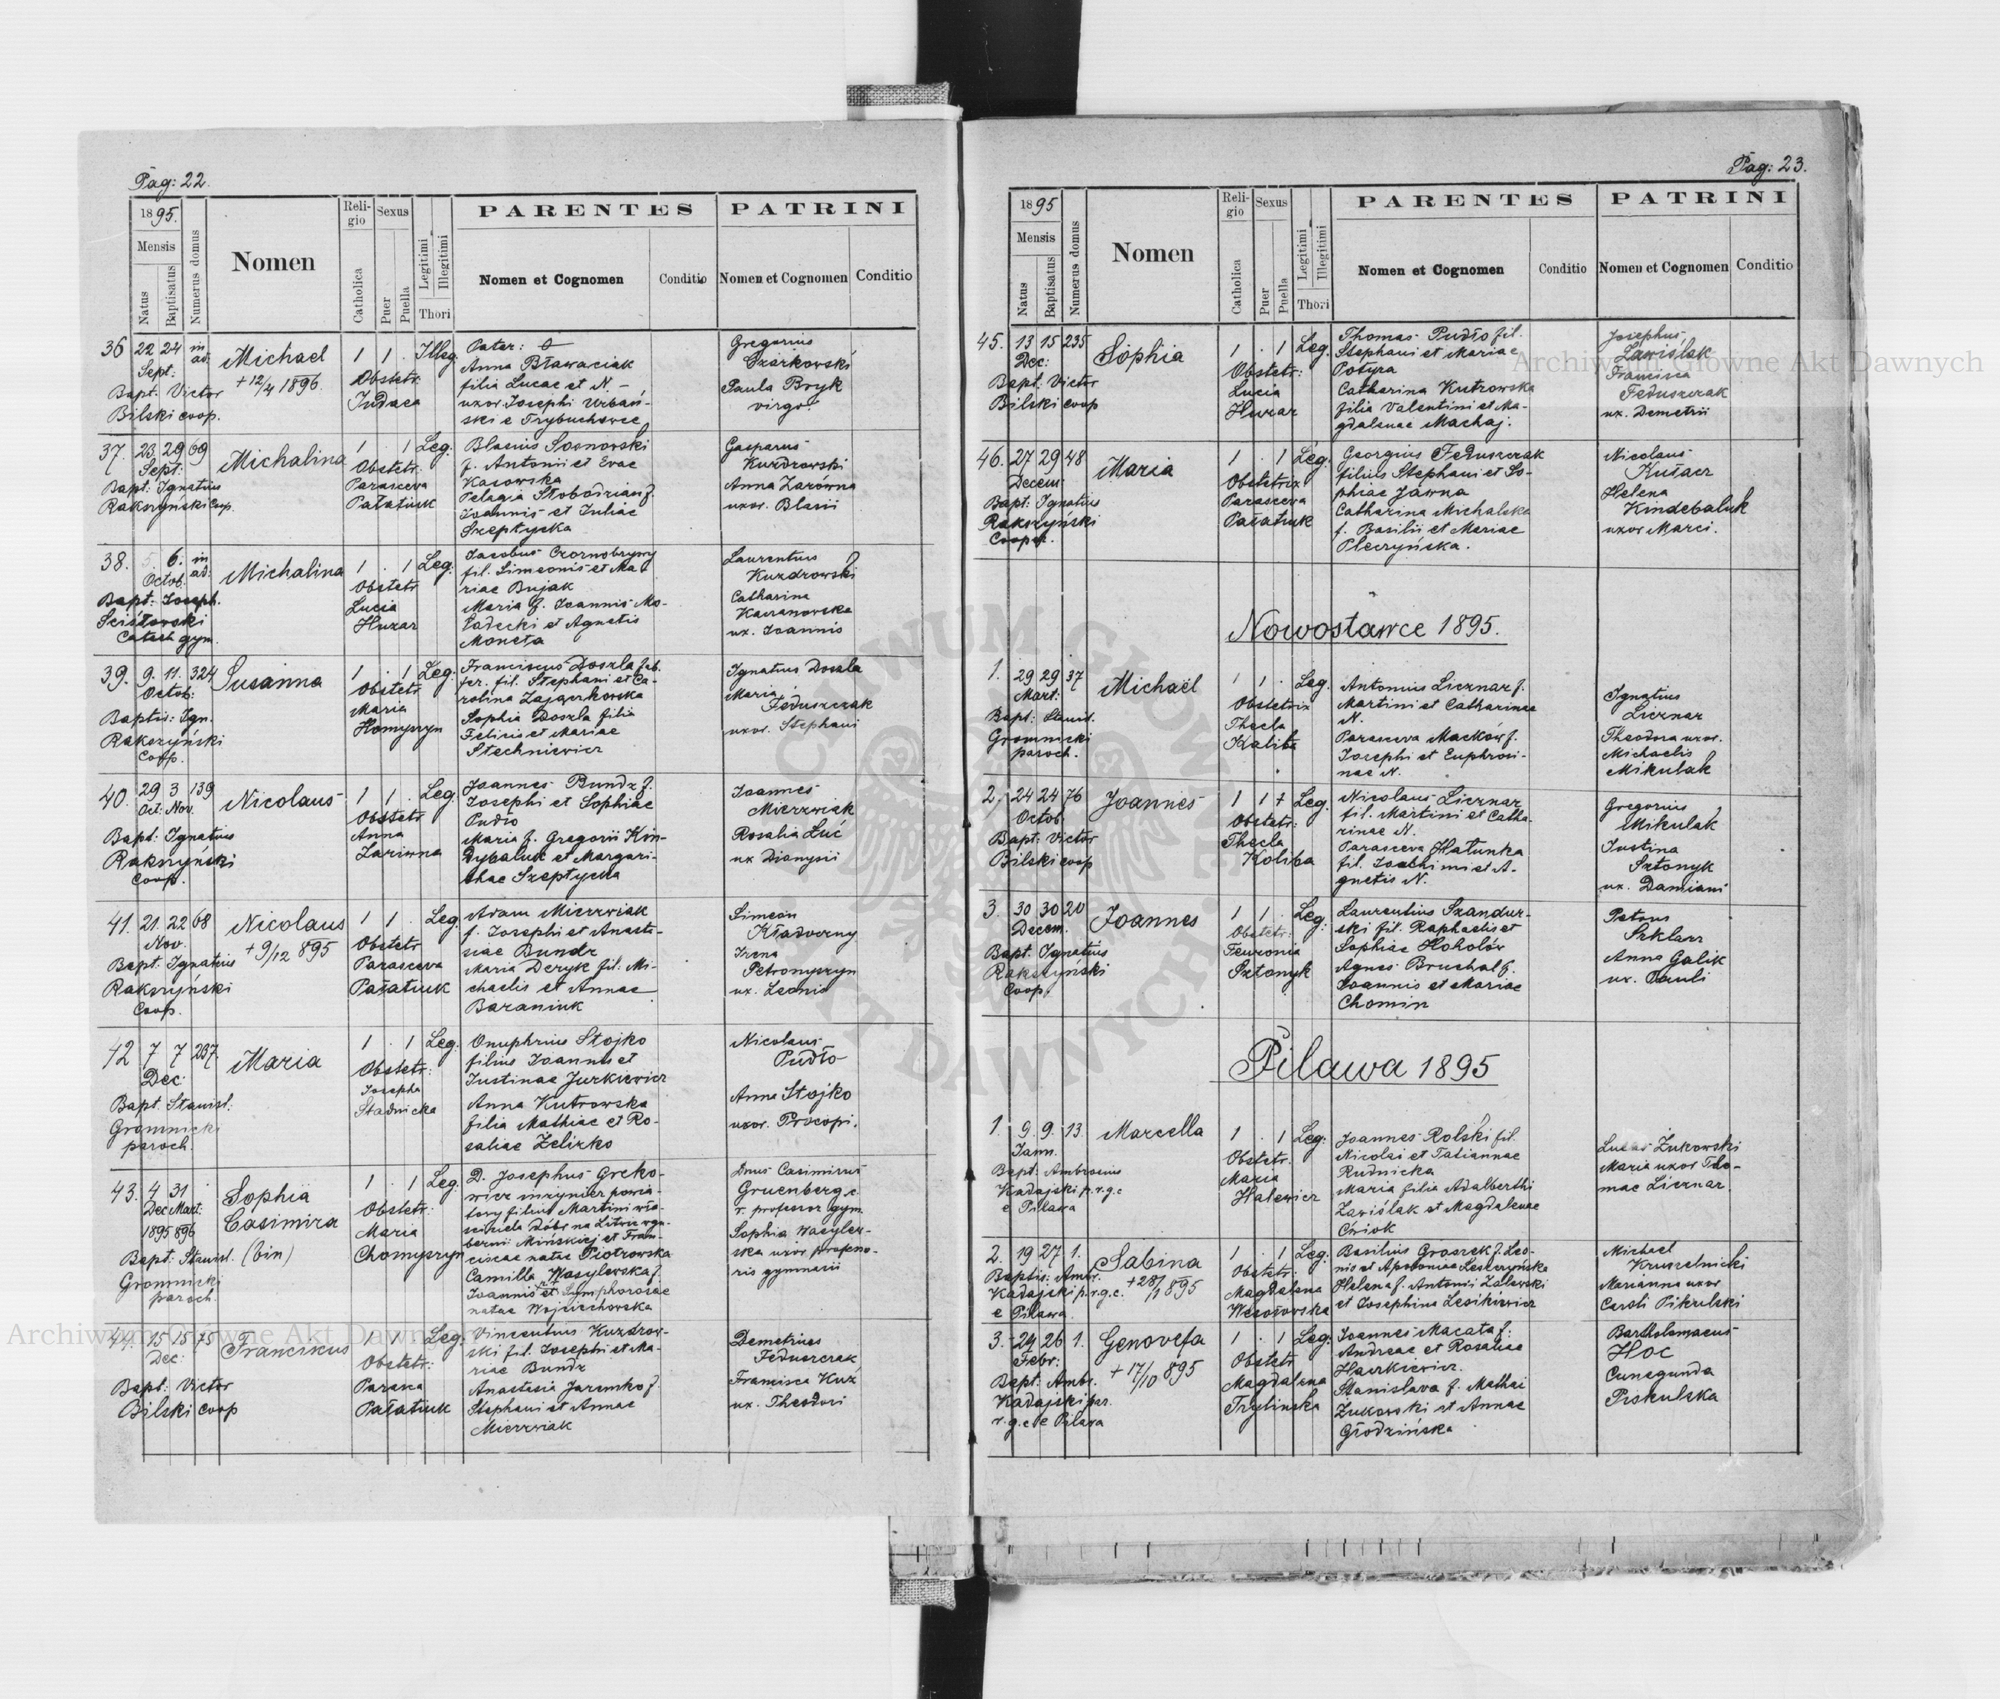 Pag: 22.
1895.
Mensis
Natus
Baptisatus
Numerus domus
Nomen
Reli-
gio
Catholica
Sexus
Puer
Puella
Legitimi
Illegitimi
Thori
PARENTES
Nomen et Cognomen
Conditio
PATRINI
Nomen et Cognomen
Conditio
36 22 24 in
Sept: ad.
Bapt: Victor
Bilski coop.
Michael
+12/4 1896.
1 1 . Illeg.
Obstetr.
Judaea
Pater: o
Anna Bławaciak
filia Lucae et N. –
uxor Josephi Urbań-
ski e Trybuchowce
Gregorius
Czarkowski
Paula Bryk
virgo.
37. 23. 29 69
Sept:
Bapt: Ignatius
Rakszyński Coop.
Michalina
1 . 1 Leg.
Obstetr:
Parasceva
Pałatiuk
Blasius Sosnowski
f. Antonii et Evae
Kasowska
Pelagia Słobodzian f.
Joannis et Juliae
Szeptycka
Gasparus
Kuzdrowski
Anna Zarówna
uxor. Blasii
38. 5. 6. in
Octob. ad.
Bapt: Joseph.
Sciśłowski
Catech gym.
Michalina
1 . 1 Leg.
Obstetr
Lucia
Huzar
Jacobus Czornobrywy
fil. Simeonis et Ma
riae Bujak
Maria f. Joannis Mo-
ładecki et Agnetis
Moneta
Laurentius
Kuzdrowski
Catharina
Kaszanowska
ux. Joannis
39. 9. 11. 324
Octob:
Baptis: Ign.
Rakszyński
Coop.
Susanna
1 . 1 Leg.
Obstetr
Maria
Homyszyn
Franciscus Doszla fab.
fer. fil. Stephani et Ca-
rolina Zajączkowska
Sophia Doszla filia
Felicis et Mariae
Stechniewicz
Ignatius Doszla
Maria
Feduszczak
uxor. Stephani
40. 29 3 139
Oct. Nov.
Bapt: Ignatius
Rakszyński
Coop.
Nicolaus
1 1 . Leg.
Obstetr
Anna
Zariwna
Joannes Bundz f.
Josephi et Sophiae
Pudło
Maria f. Gregorii Kin-
dybaluk et Margari-
thae Szeptycka
Joannes
Mierzwiak
Rosalia Łuć
ux Dionysii
41. 21. 22 68
Nov.
Bapt. Ignatius
Rakszyński
Coop.
Nicolaus
+ 9/12 895
1 1 . Leg.
Obstetr
Parasceva
Pałatiuk
Adam Mierzwiak
f. Josephi et Anasta-
siae Bundz
Maria Deryk fil. Mi-
chaelis et Annae
Baraniuk
Simeon
Kładworny
Irena
Petronyszyn
ux. Leonis
42 7 7 237.
Dec:
Bapt. Stanisl:
Gromnicki
paroch.
Maria
1 . 1 Leg.
Obstetr:
Josepha
Stadnicka
Onuphrius Stojko
filius Joannis et
Justinae Jurkiewicz
Anna Kutrowska
filia Mathiae et Ro-
saliae Żelizko
Nicolaus
Pudło
Anna Stojko
uxor. Procopi.
43. 4 31
Dec Mart.
1895 896
Bapt: Stanisl.
Gromnicki
paroch.
Sophia
Casimira
(bin)
1 . 1 Leg.
Obstetr:
Maria
Chomyszyn
D. Josephus Greko-
wicz inżynier powia-
towy filius Martini wła-
sciciela dóbr na Litwie gu-
berni Mińskiej et Fran-
ciscae natae Piotrowska
Camilla Wasylewska f.
Joannis et Symphorosae
natae Wojciechowska
Dnus Casimirus
Gruenberg c.
r. professor gym.
Sophia Wasylew-
ska uxor profeso-
ris gymnasii
44. 15 15 75
Dec:
Bapt: Victor
Bilski coop
Franciscus
1 1 . Leg.
Obstetr:
Parasca
Pałatiuk
Vincentius Kuzdrow-
ski fil. Josephi et Ma-
riae Bundz
Anastasia Jaremko f.
Stephani et Annae
Mierzwiak
Demetrius
Feduszczak
Francisca Kuź
ux. Theodori
Pag: 23.
1895
Mensis
Natus
Baptisatus
Numerus domus
Nomen
Reli-
gio
Catholica
Sexus
Puer
Puella
Legitimi
Illegitimi
Thori
PARENTES
Nomen et Cognomen
Conditio
PATRINI
Nomen et Cognomen
Conditio
45. 13 15 235
Dec:
Bapt: Victor
Bilski coop
Sophia
1 . 1 Leg.
Obstetr:
Lucia
Huzar
Thomas Pudło fil.
Stephani et Mariae
Potyra
Catharina Kutrowska
filia Valentini et Ma-
gdalenae Machaj.
Josephus
Zawiślak
Francisca
Feduszczak
ux. Demetrii
46. 27 29 48
Decem:
Bapt: Ignatius
Rakszyński
Cooper.
Maria
1 . 1 Leg.
Obstetrix
Parasceva
Pałatiuk
Georgius Feduszczak
filius Stephani et So-
phiae Jawna
Catharina Michalska
f. Basilii et Mariae
Pleczyńska.
Nicolaus
Kułacz
Helena
Kindebaluk
uxor Marci.
Nowostawce 1895.
1. 29 29 37
Mart:
Bapt: Stanisl.
Gromnicki
paroch.
Michaël
1 1 . Leg.
Obstetrix
Thecla
Kaliba
Antonius Licznar f.
Martini et Catharinae
N.
Parasceva Maćków f.
Josephi et Euphrosi-
nae N.
Ignatius
Licznar
Theodora uxor.
Michaelis
Mikulak
2. 24 24 76
Octob.
Bapt: Victor
Bilski coop
Joannes
1 1 + Leg.
Obstetr:
Thecla
Koliba
Nicolaus Licznar
fil. Martini et Catha-
rinae N.
Parasceva Hałunka
fil. Joachimi et A-
gnetis N.
Gregorius
Mikulak
Justina
Sztonyk
ux. Damiani
3. 30 30 20
Decem.
Bapt: Ignatius
Rakszyński
Coop.
Joannes
1 1 . Leg.
Obstetr:
Fewronia
Sztonyk
Laurentius Szandur-
ski fil. Raphaelis et
Sophiae Hoholów
Agnes Bruchal f.
Joannis et Mariae
Chomin
Petrus
Szklarz
Anna Galik
ux. Pauli
Pilawa 1895
1. 9. 9. 13.
Jann.
Bapt: Ambrosius
Kadajski p.r.g.c
e Pilawa
Marcella
1 . 1 Leg:
Obstetr.
Maria
Halewicz
Joannes Rolski fil.
Nicolai et Tatiannae
Rudnicka
Maria filia Adalberthi
Zawiślak et Magdalenae
Ćwiok
Lucas Żukowski
Maria uxor Tho-
mae Licznar.
2. 19 27 1.
Baptis: Ambr.
Kadajski p.r.g.c.
e Pilawa
Sabina
+28/1 895
1 . 1 Leg:
Obstetr:
Magdalena
Wesołowska
Basilius Groszek f. Leo-
nis et Apoloniae Leszczyńska
Helena f. Antonii Zalewski
et Josephina Lesikiewicz
Michael
Kruszelnicki
Marianna uxor
Caroli Pikulski
3. 24 26 1.
Febr:
Bapt: Ambr.
Kadajski par.
r.g.c e Pilawa
Genovefa
+ 17/10 895
1 . 1 Leg:
Obstetr
Magdalena
Trylinska
Joannes Macata f.
Andreae et Rosaliae
Hawrkiewicz.
Stanislava f. Mathai
Żukowski et Annae
Głodzińska
Bartholomaeus
Hoc
Cunegunda
Piskulska
Archiwum Główne Akt Dawnych
Archiwum Główne Akt Dawnych
ARCHIWUM GŁÓWNE AKT DAWNYCH